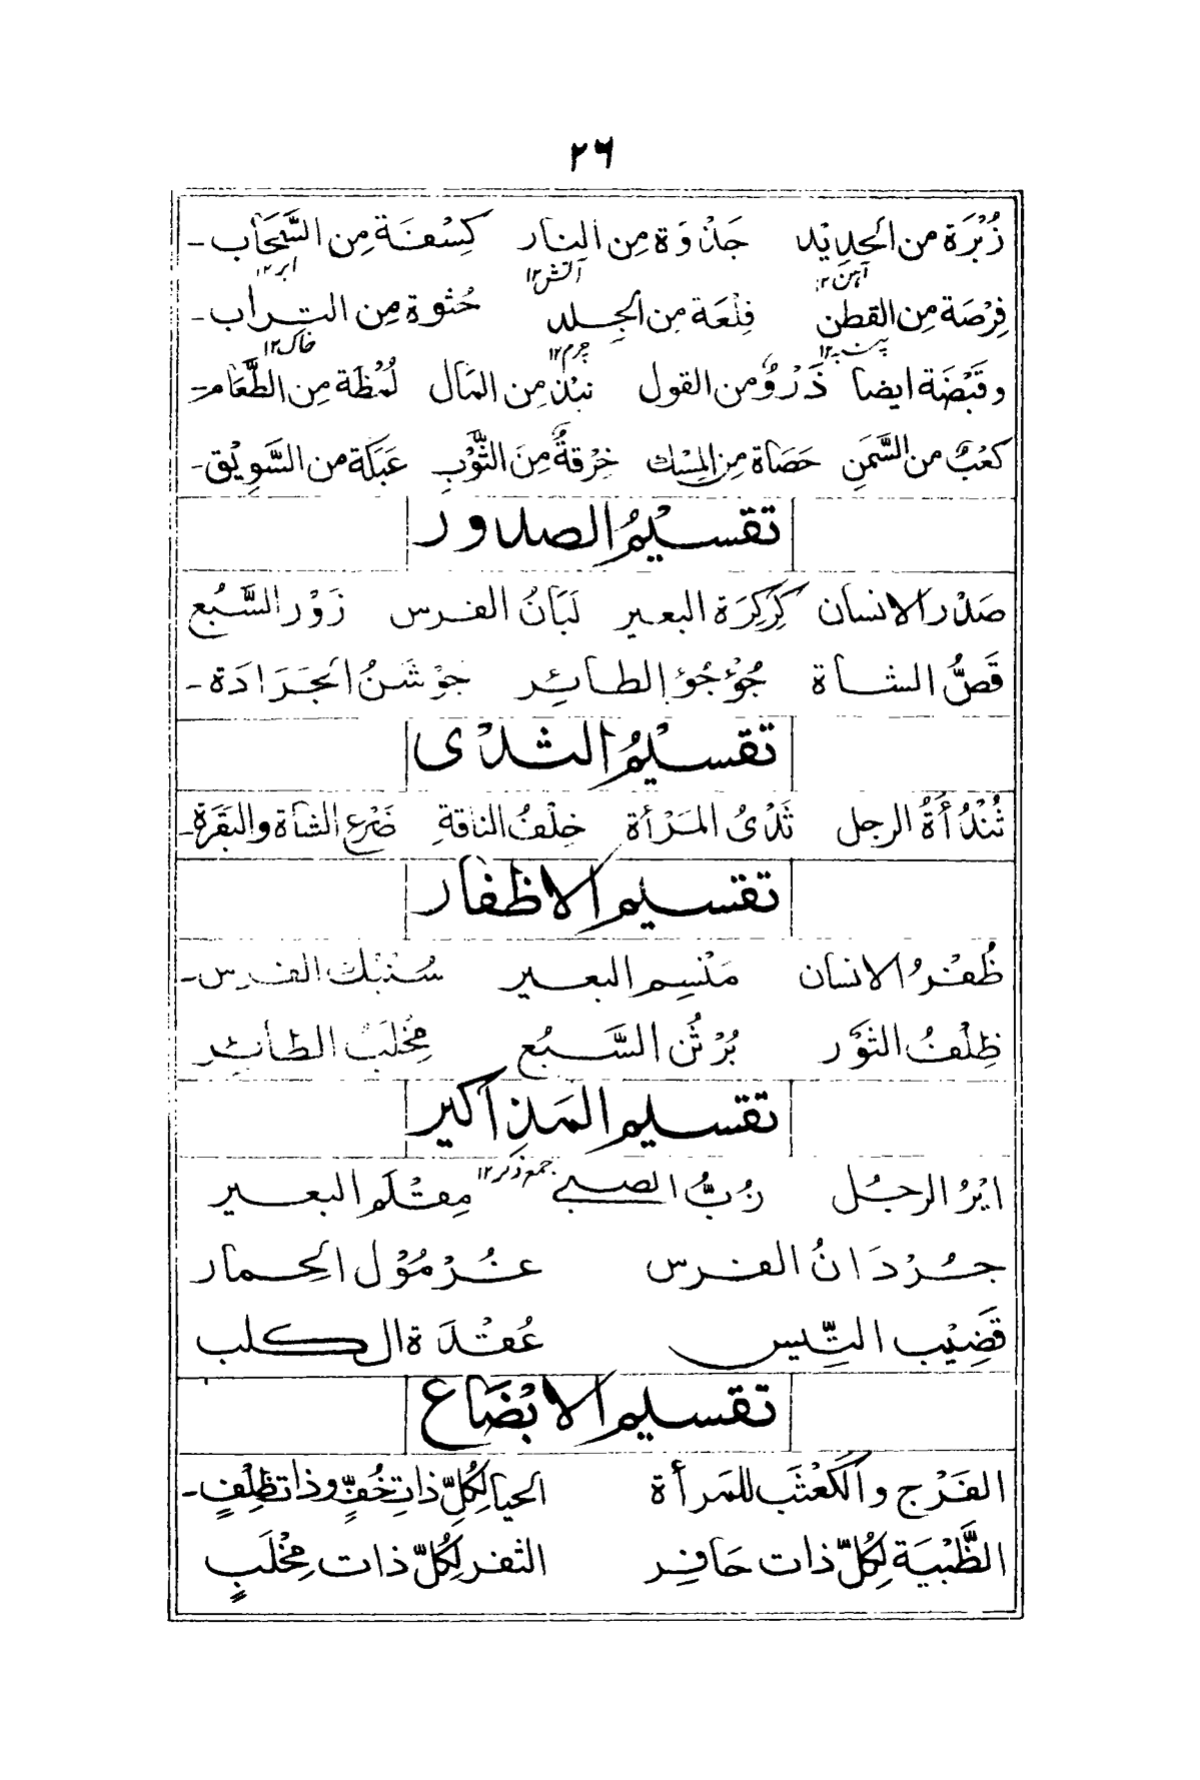 ۲۶
زُبْرَة من الحدِیْد جَذْوَة مِن النار کِسْفَة مِن السَّحَاب۔
آہن۱۲ آتش۱۲ ابر۱۲
فِرْصَة مِن القطن فِلْعَة مِن الجِلد حُثوة مِن التراب۔
پنبہ۱۲ چرم۱۲ خاک۱۲
وقَبْضَة ایضا ذَرْوٌ من القول نبْذ مِن المَال لُمْظَة مِن الطَّعَام۔
کعْبٌ من السَّمَنِ حَصَاة مِن المِسْك خِرْقةٌ مِنَ الثَّوْبِ عَبَکَة من السَّوِیْق۔
تقسیْمُ الصدور
صَدْر الانسان کَرْکِرَة البعیر لَبَانُ الفرس زَوْر السَّبُع
قَصُّ الشاة جُؤْجُؤ الطائِر جَوْشَنُ الجَرَادَة۔
تقسیْمُ الثدْی
ثُنْدُأَةُ الرجل ثَدْیُ المَرْأة خِلْفُ الناقةِ ضَرْع الشاة والبَقَرَة۔
تقسیم الاظفار
ظُفْرُ الانسان مَنْسِم البعیر سُنْبُك الفرس۔
ظِلْفُ الثَوْر بُرْثُن السَّبُع مِخْلَبُ الطائر
تقسیم المَذاکیر
جمع ذکر۱۲
ایْرُ الرجُل زُبُّ الصبی مِقْلَم البعیر
جُرْدَانُ الفرس غُرْمُوْل الحِمار
قَضِیْب التَّیس عُقْدَة الکلب
تقسیم الابْضَاع
الفَرْج والکَعْثَب للمَرأة الحیا لِکُلِّ ذاتِ خُفٍّ وذات ظِلْفٍ۔
الظَّبْیَة لِکُلِّ ذات حَافِر الثفر لِکُلِّ ذات مِخْلَبٍ